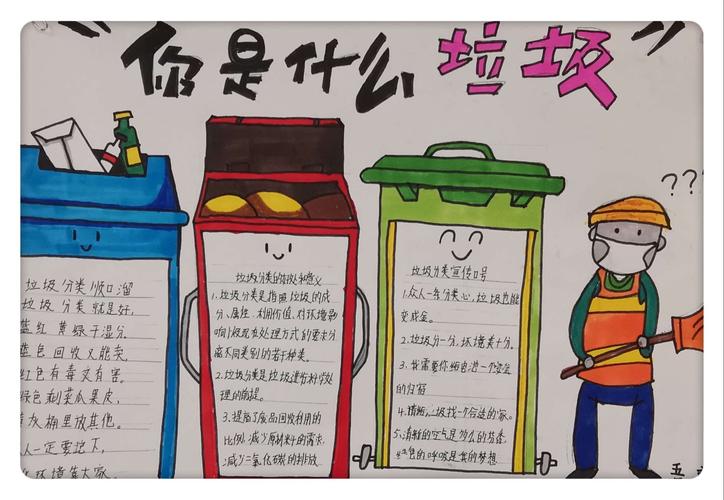 你是什么垃圾
垃圾分类顺口溜
垃圾分类就是好,
蓝红黄绿干湿分.
蓝色回收又能卖,
红色有毒又有害.
绿色剩菜瓜果皮,
黄灰桶里放其他.
人人一定要记下,
环境靠大家.
垃圾分类的好处和意义
1.垃圾分类是指照垃圾的成
分、属性、利用价值、对环境影
响以及现有处理方式的要求分
成不同类别的若干种类.
2.垃圾分类是垃圾进行科学处
理的前提.
3.提高了废品回收利用的
比例.减少原材料的需求
减少二氧化碳的排放
垃圾分类宣传口号
1.众人一条分类心,垃圾也能
变成金.
2.垃圾分一分,环境美十分.
3.我需要你给自己一个安全
的归宿
4.请给垃圾找一个合适的家.
5.清新的空气是多么的芳香
绿色的呼吸是我的梦想
???
五